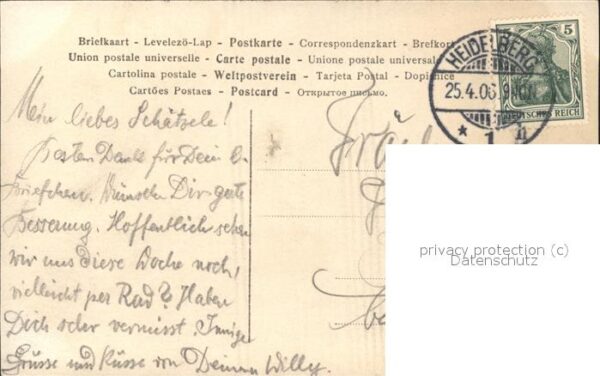 Briefkaart - Levelező-Lap - Postkarte - Correspondenzkart - Brefkort
Union postale universelle - Carte postale - Unione postale universale
Cartolina postale - Weltpostverein - Tarjeta Postal - Dopisnice
Cartões Postaes - Postcard - Открытое письмо.
HEIDELBERG
25.4.06
* 1
5
DEUTSCHES REICH
Mein liebes Schätzele!
Besten Dank für Dein l.
Briefchen. Wünsche Dir gute
Besserung. Hoffentlich sehen
wir uns diese Woche noch,
vielleicht per Rad? Haben
Dich sehr vermisst. Innige
Grüsse und Küsse von Deinem Willy.
Fräul
privacy protection (c)
Datenschutz